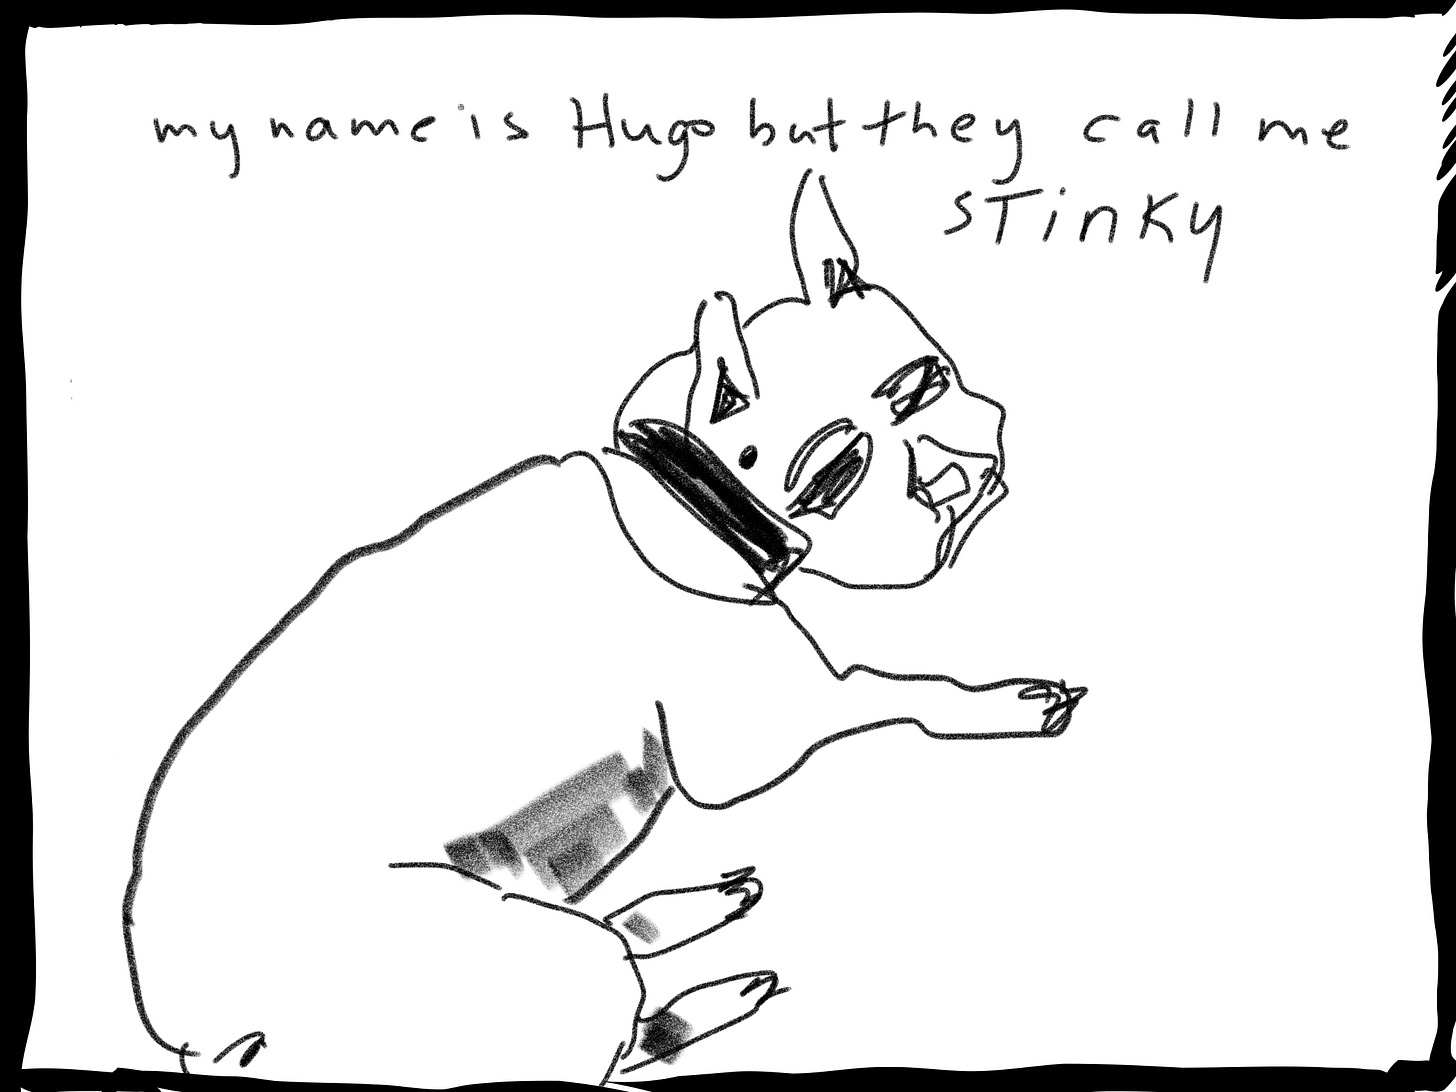 my name is Hugo but they call me
STinKy